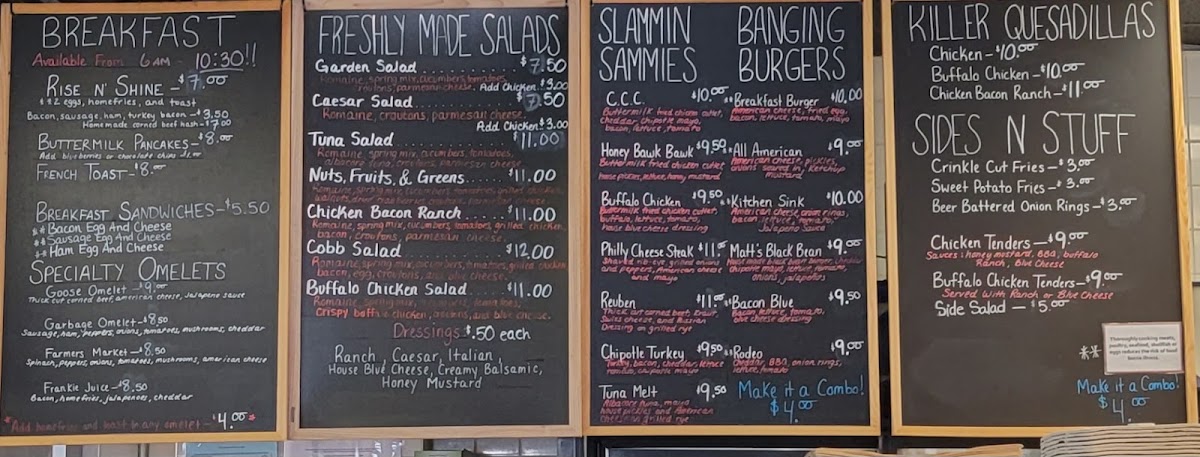 BREAKFAST
Available From 6AM - 10:30!!
RISE N' SHINE - $7.00
2 eggs, homefries, and toast
Bacon, sausage, ham, turkey bacon - $3.50
Homemade corned beef hash - $7.00
BUTTERMILK PANCAKES - $8.00
Add blueberries or chocolate chips
FRENCH TOAST - $8.00
BREAKFAST SANDWICHES - $5.50
** Bacon Egg And Cheese
** Sausage Egg And Cheese
** Ham Egg And Cheese
SPECIALTY OMELETS
Goose Omelet - $9.00
Thick cut corned beef, american cheese, Jalapeno sauce
Garbage Omelet - $8.50
Sausage, ham, peppers, onions, tomatoes, mushrooms, cheddar
Farmers Market - $8.50
Spinach, peppers, onions, tomatoes, mushrooms, american cheese
Frankie Juice - $8.50
Bacon, homefries, jalapenoes, cheddar
*Add homefries and toast to any omelet - $4.00*
FRESHLY MADE SALADS
Garden Salad $7.50
Romaine, spring mix, cucumbers, tomatoes,
croutons, parmesan cheese. Add Chicken $3.00
Caesar Salad $7.50
Romaine, croutons, parmesan cheese.
Add Chicken $3.00
Tuna Salad $11.00
Romaine, spring mix, cucumbers, tomatoes,
Nuts, Fruits, & Greens $11.00
Romaine, spring mix, cucumbers, tomatoes, grilled chicken,
Chicken Bacon Ranch $11.00
Romaine, spring mix, cucumbers, tomatoes, grilled chicken,
bacon, croutons, parmesan cheese.
Cobb Salad $12.00
Romaine, spring mix, cucumbers, tomatoes, grilled chicken
bacon, egg, croutons, and blue cheese.
Buffalo Chicken Salad $11.00
Romaine, spring mix, cucumbers, tomatoes,
Crispy buffalo chicken, onions, and blue cheese.
Dressings $.50 each
Ranch, Caesar, Italian,
House Blue Cheese, Creamy Balsamic,
Honey Mustard
SLAMMIN
SAMMIES
C.C.C. $10.00
Buttermilk fried chicken cutlet,
cheddar, chipotle mayo,
bacon, lettuce, tomato
Honey Bawk Bawk $9.50
Buttermilk fried chicken cutlet
house pickles, lettuce, honey mustard
Buffalo Chicken $9.50
Buttermilk fried chicken cutlet,
buffalo, lettuce, tomato,
house blue cheese dressing
Philly Cheese Steak $11.00
Shaved rib-eye, grilled onions
and peppers, American cheese
and mayo
Reuben $11.00
Thick cut corned beef, kraut,
Swiss cheese, and Russian
Dressing on grilled rye
Chipotle Turkey $9.50
Turkey, bacon, cheddar, lettuce
tomato, chipotle mayo
Tuna Melt $9.50
Albacore tuna, mayo
house pickles and American
cheese on grilled rye
BANGING
BURGERS
** Breakfast Burger $10.00
American cheese, fried egg,
bacon, lettuce, tomato, mayo
** All American $9.00
American cheese, pickles,
onions seared in, Ketchup
Mustard
** Kitchen Sink $10.00
American cheese, onion rings,
bacon, lettuce, tomato,
Jalapeno Sauce
** Matt's Black Bean $9.00
House made black bean burger, cheddar
chipotle mayo, lettuce, tomatoe,
onions, jalapenos
** Bacon Blue $9.50
Bacon, lettuce, tomato,
blue cheese dressing
** Rodeo $9.00
Cheddar, BBQ, onion rings,
lettuce, tomato
Make it a Combo!
$4.00
KILLER QUESADILLAS
Chicken - $10.00
Buffalo Chicken - $10.00
Chicken Bacon Ranch - $11.00
SIDES N STUFF
Crinkle Cut Fries - $3.00
Sweet Potato Fries - $3.00
Beer Battered Onion Rings - $3.00
Chicken Tenders - $9.00
Sauces: honey mustard, BBQ, buffalo
Ranch, Blue Cheese
Buffalo Chicken Tenders - $9.00
Served With Ranch or Blue Cheese
Side Salad - $5.00
** Thoroughly cooking meats,
poultry, seafood, shellfish or
eggs reduces the risk of food
borne illness.
Make it a Combo!
$4.00